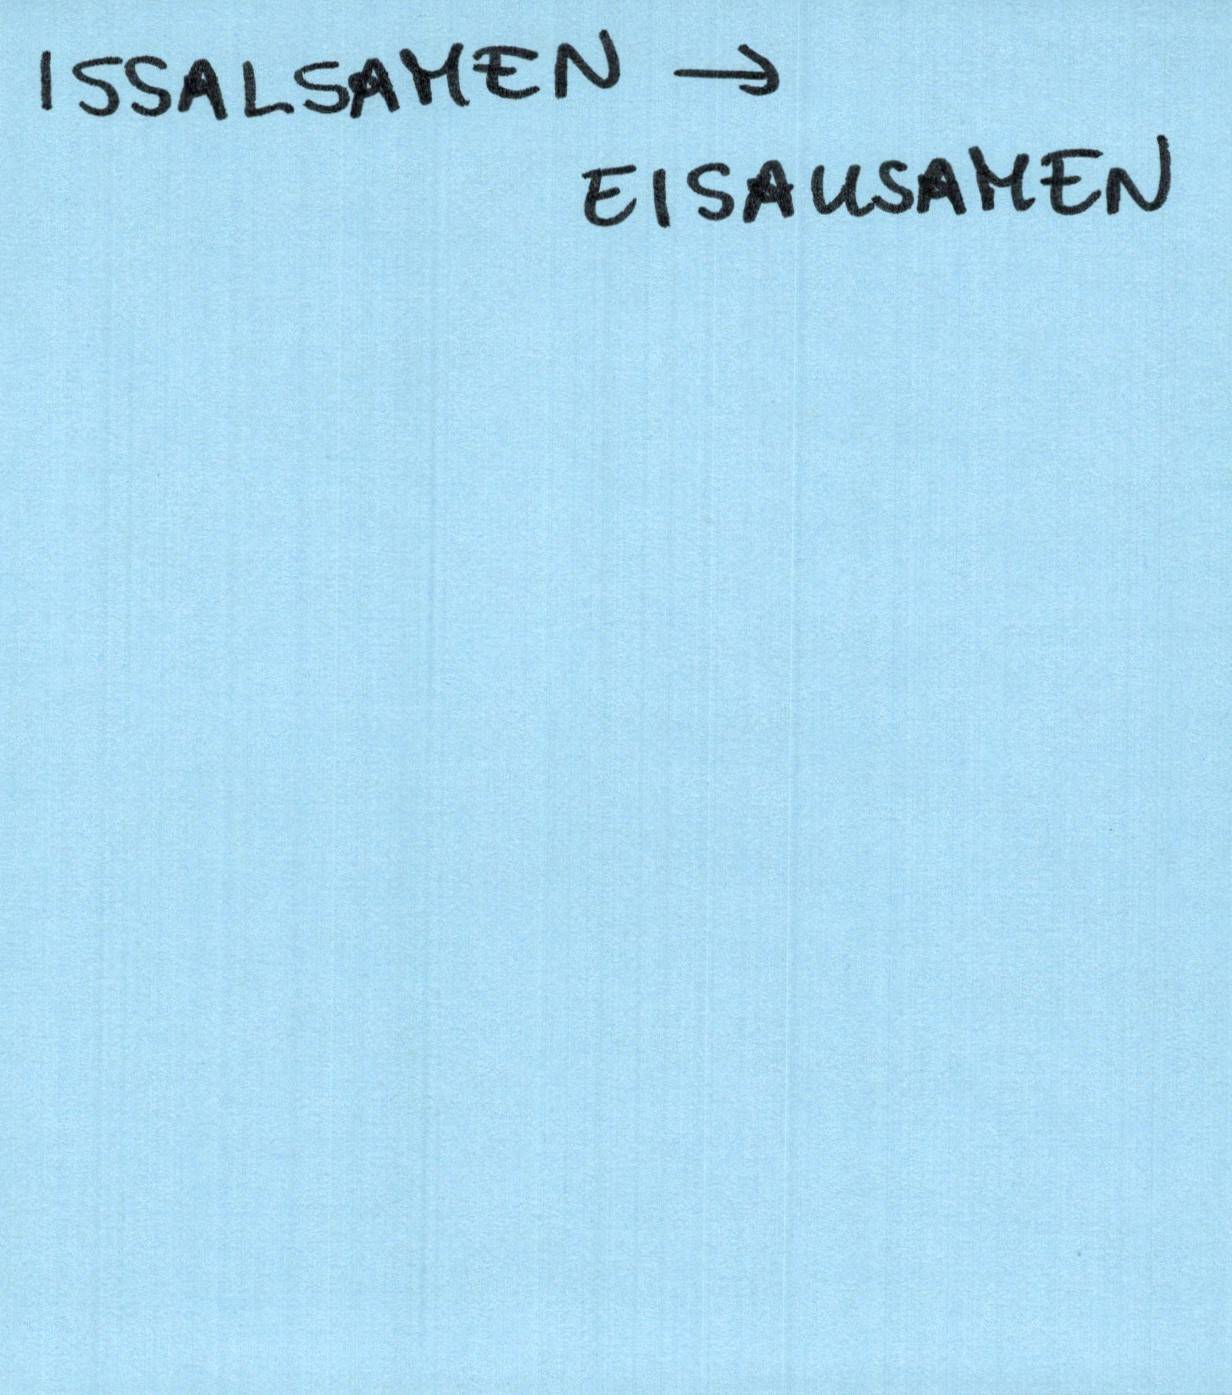 ISSALSAMEN →
EISAUSAMEN